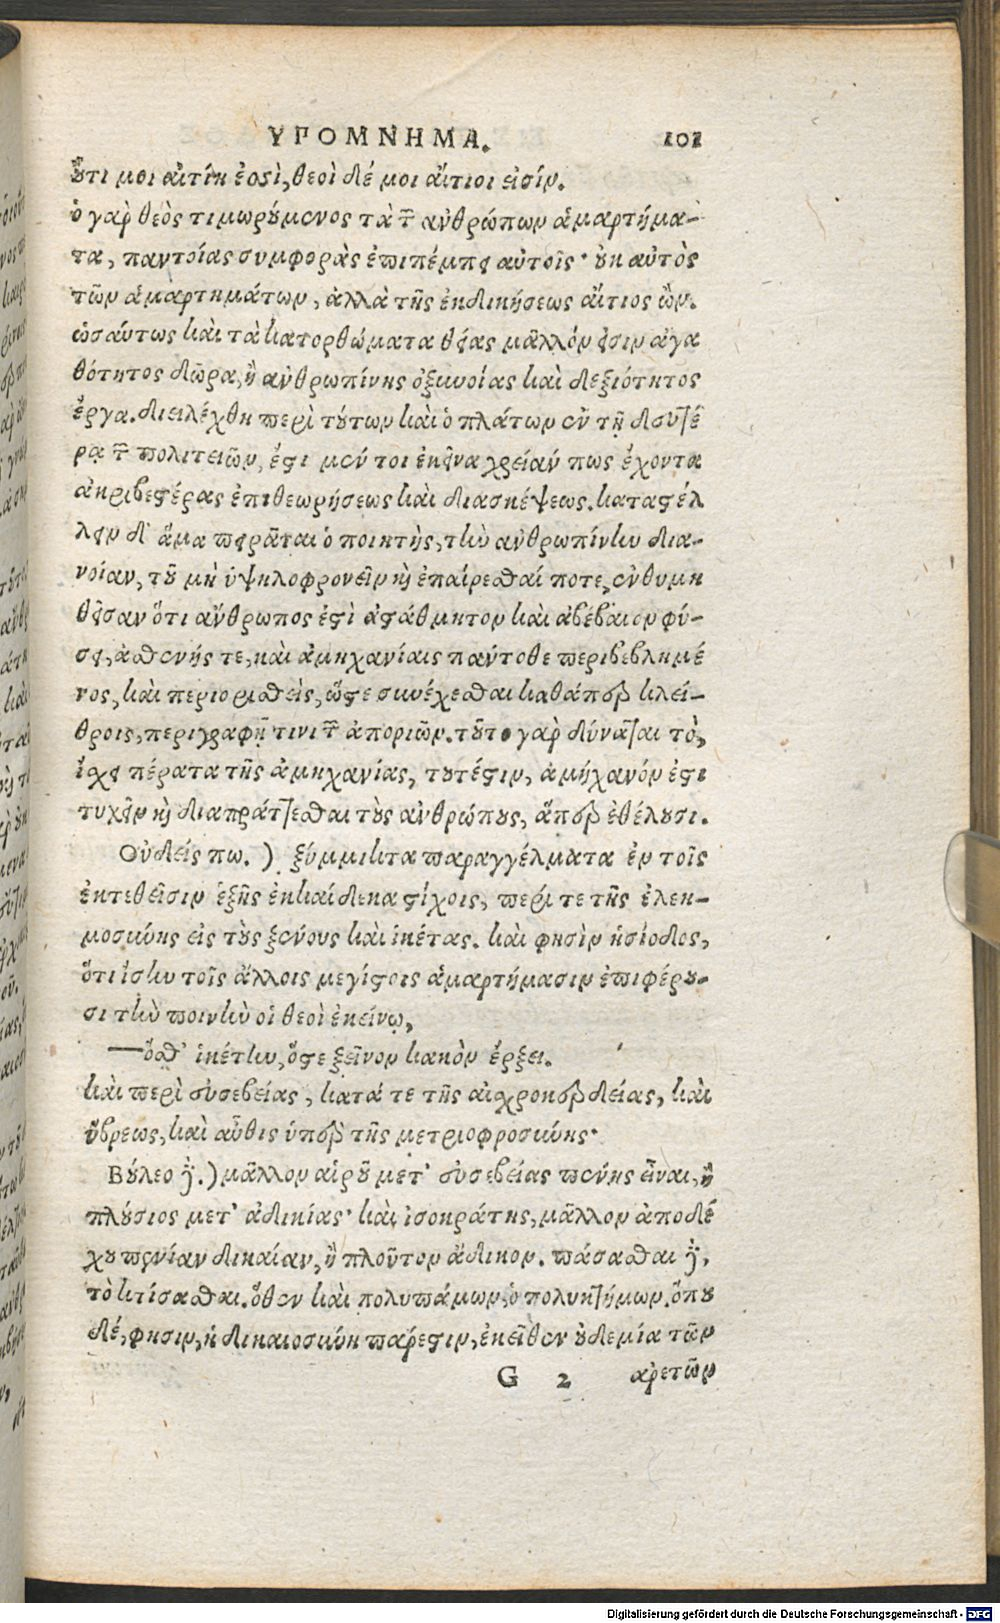 ΥΓΟΜΝΗΜΑ. 101
οὔτι μοι αἰτίη ἐσσὶ, θεοὶ δέ μοι αἴτιοι εἰσίν.
ὁ γὰρ θεὸς τιμωρούμενος τὰ τῶν ἀνθρώπων ἁμαρτήμα-
τα, παντοίας συμφορὰς ἐπιπέμπει αὐτοῖς· οὐκ αὐτὸς
τῶν ἁμαρτημάτων, ἀλλὰ τῆς ἐκδικήσεως αἴτιος ὤν.
ὡσαύτως καὶ τὰ κατορθώματα θείας μᾶλλόν εἰσιν ἀγα
θότητος δῶρα, ἢ ἀνθρωπίνης ὀξυνοίας καὶ δεξιότητος
ἔργα. διειλέχθη περὶ τούτων καὶ ὁ πλάτων ἐν τῇ δευτέ
ρᾳ τῶν πολιτειῶν, ἔστι μέν τοι ἐκεῖνα χρείαν πως ἔχοντα
ἀκριβεστέρας ἐπιθεωρήσεως καὶ διασκέψεως. καταστέλ
λειν δ' ἅμα πειρᾶται ὁ ποιητὴς, τὴν ἀνθρωπίνην δια-
νοίαν, τοῦ μὴ ὑψηλοφρονεῖν καὶ ἐπαίρεσθαί ποτε, ἐνθυμη
θεῖσαν ὅτι ἄνθρωπος ἐστὶ ἀστάθμητον καὶ ἀβέβαιον φύ-
σει, ἀσθενής τε, καὶ ἀμηχανίαις παντόθε περιβεβλημέ
νος, καὶ περιορισθεὶς, ὥστε συνέχεσθαι καθάπερ κλεί-
θροις, περιγραφῇ τινι τῶν ἀποριῶν. τοῦτο γὰρ δύναται τὸ,
ἴσχει πέρατα τῆς ἀμηχανίας, τουτέστιν, ἀμήχανόν ἐστι
τυχεῖν καὶ διαπράττεσθαι τοὺς ἀνθρώπους, ἅπερ ἐθέλουσι.
Οὐδείς πω. ) ξύμμικτα παραγγέλματα ἐν τοῖς
ἐκτεθεῖσιν ἑξῆς ἑκκαίδεκα στίχοις, περί τε τῆς ἐλεη-
μοσύνης εἰς τοὺς ξένους καὶ ἱκέτας. καὶ φησὶν ἡσίοδος,
ὅτι ἴσην τοῖς ἄλλοις μεγίστοις ἁμαρτήμασιν ἐπιφέρου-
σι τὴν ποινὴν οἱ θεοὶ ἐκείνῳ,
—ὅσθ' ἱκέτην, ὅστε ξεῖνον κακὸν ἔρξει.
καὶ περὶ εὐσεβείας, κατά τε τῆς αἰσχροκερδείας, καὶ
ὕβρεως, καὶ αὖθις ὑπὲρ τῆς μετριοφροσύνης·
Βούλεο δ'. ) μᾶλλον αἱροῦ μετ' εὐσεβείας πένης εἶναι, ἢ
πλούσιος μετ' ἀδικίας· καὶ ἰσοκράτης, μᾶλλον ἀποδέ
χου πενίαν δικαίαν, ἢ πλοῦτον ἄδικον. πάσασθαι δ',
τὸ κτίσασθαι. ὅθεν καὶ πολυπάμων, ὁ πολυκτήμων. ὅπου
δέ, φησιν, ἡ δικαιοσύνη πάρεστιν, ἐκεῖθεν οὐδεμία τῶν
G 2 ἀρετῶν
Digitalisierung gefördert durch die Deutsche Forschungsgemeinschaft - DFG